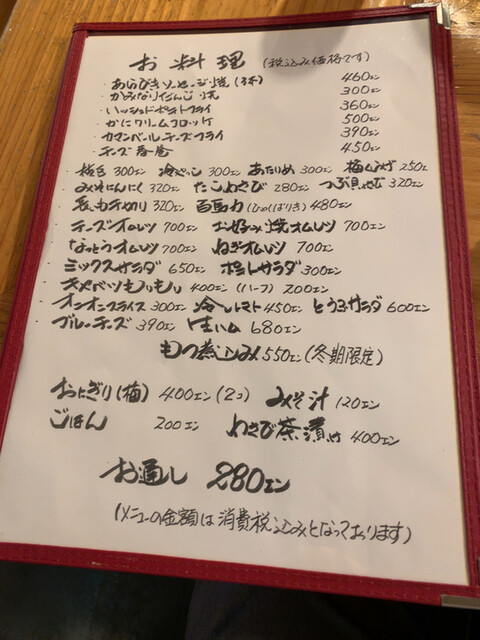 お料理 (税込み価格です)
・あらびきソーセージ焼(3本) 460エン
・かみなりだんご焼 300エン
・ハッシュドポテトフライ 360エン
・かにクリームコロッケ 500エン
・カマンベールチーズフライ 390エン
・チーズ春巻 450エン
・枝豆 300エン 冷やっこ 300エン あたりめ 300エン 梅くらげ 250エン
・みそにんにく 320エン たこわさび 280エン つぶ貝わさび 320エン
・長いも千切り 320エン 百馬力(ひゃくばりき) 480エン
・チーズオムレツ 700エン お好み焼オムレツ 700エン
・なっとうオムレツ 700エン ねぎオムレツ 700エン
・ミックスサラダ 650エン ポテトサラダ 300エン
・キャベツもりもり 400エン (ハーフ) 200エン
・オニオンスライス 300エン 冷しトマト 450エン とうふサラダ 600エン
・ブルーチーズ 390エン 生ハム 680エン
もつ煮込み 550エン (冬期限定)
おにぎり(梅) 400エン(2コ) みそ汁 120エン
ごはん 200エン わさび茶漬け 400エン
お通し 280エン
(メニューの金額は消費税込みとなっております)